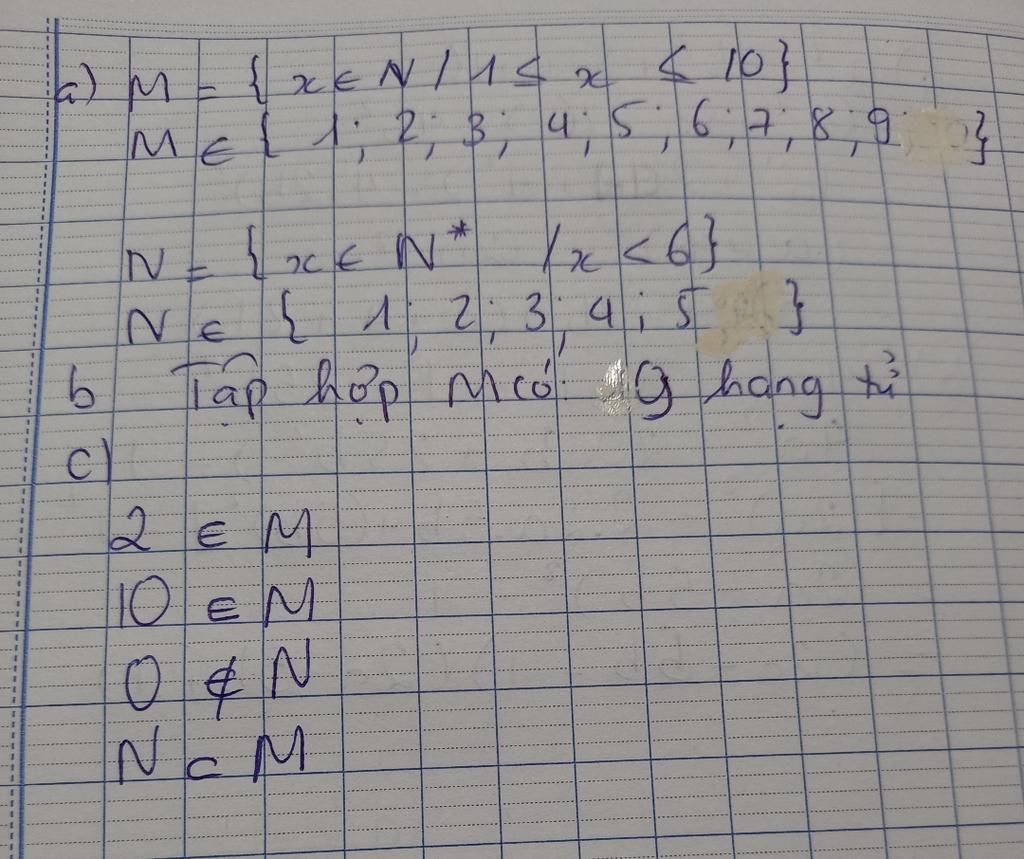 a) M = { x ∈ N / 1 ≤ x < 10 }
M ∈ { 1; 2; 3; 4; 5; 6; 7; 8; 9 }
N = { x ∈ N* / x < 6 }
N ∈ { 1; 2; 3; 4; 5 }
b Tập hợp M có: 9 hạng tử
c)
2 ∈ M
10 ∈ M
0 ∉ N
N ⊂ M